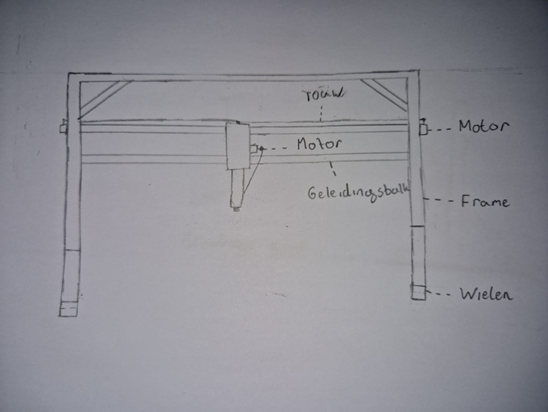 Touw
Motor
Motor
Geleidingsbalk
Frame
Wielen